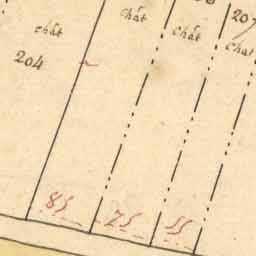 207
chât
chât
chât
chat
204
85
75
55